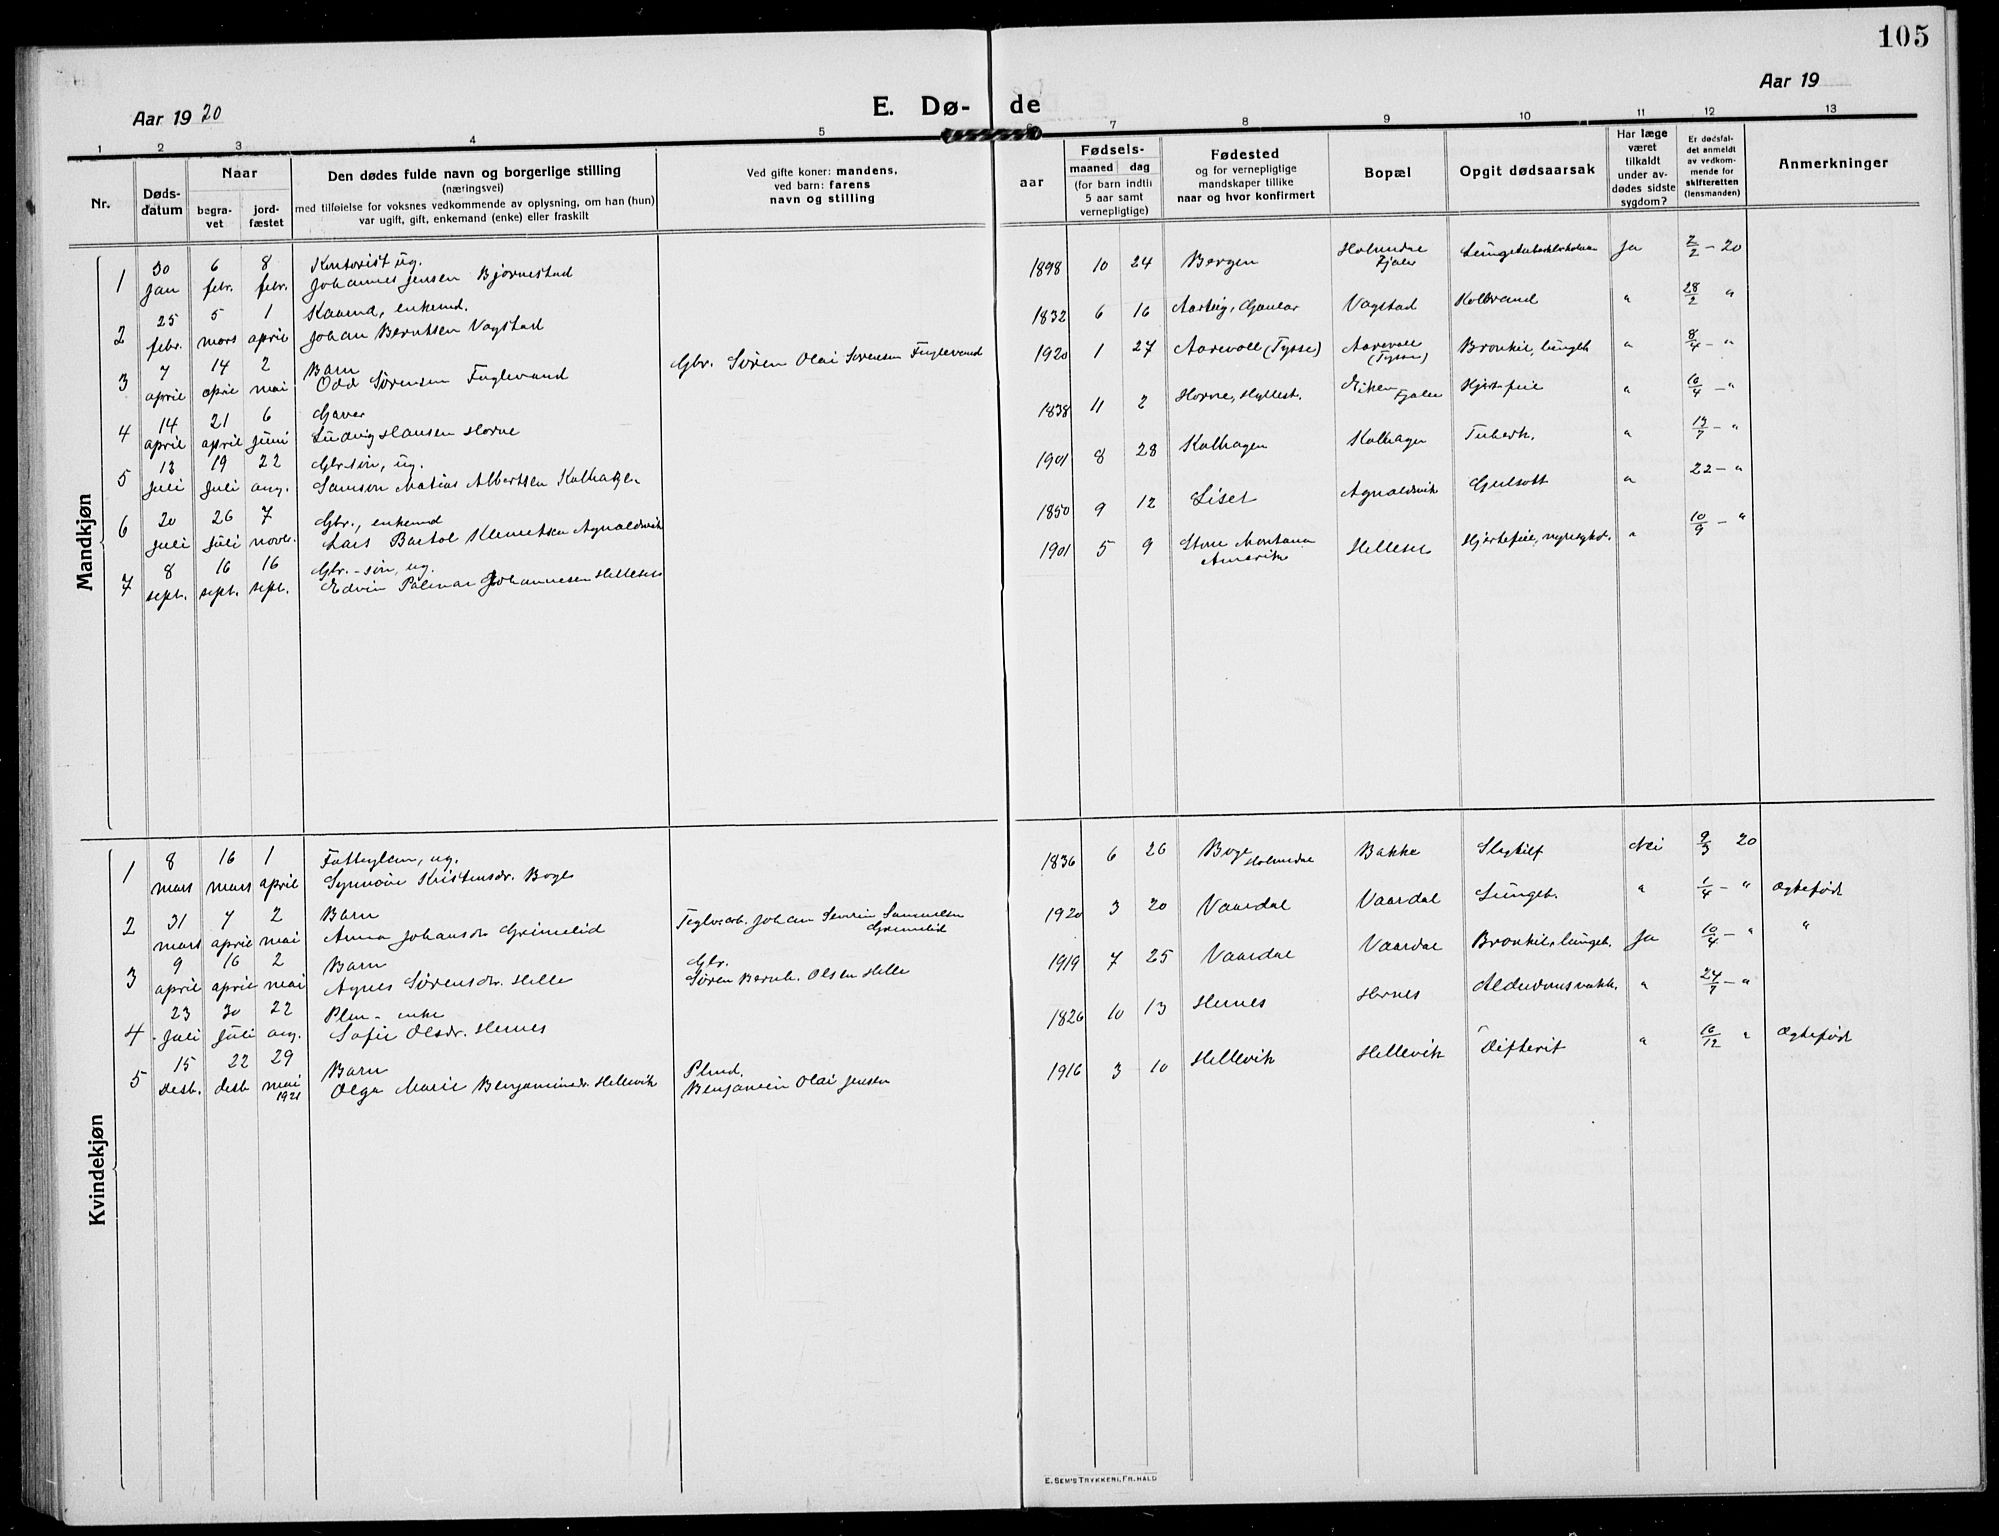 105
Aar 1920
E. Dø- de
Aar 19
1 2 3 4 5 6 7 8 9 10 11 12 13
Nr.
Døds-
datum
Naar
begra-
vet
jord-
fæstet
Den dødes fulde navn og borgerlige stilling
(næringsvei)
med tilføielse for voksnes vedkommende av oplysning, om han (hun)
var ugift, gift, enkemand (enke) eller fraskilt
Ved gifte koner: mandens,
ved barn: farens
navn og stilling
Fødsels-
aar
maaned dag
(for barn indtil
5 aar samt
vernepligtige)
Fødested
og for vernepligtige
mandskaper tillike
naar og hvor konfirmert
Bopæl
Opgit dødsaarsak
Har læge
været
tilkaldt
under av-
dødes sidste
sygdom?
Er dødsfal-
det anmeldt
av vedkom-
mende for
skifteretten
(lensmanden)
Anmerkninger
Mandkjøn
1 30 jan 6 febr. 8 febr. Kontorist ug.
Johannes Jensen Bjørnestad 1898 10 24 Bergen Holmedal Fjaler Ja 2/2 - 20
2 25 febr. 5 mars 1 april Kaarmd, enkemd.
Johan Berntsen Vagstad 1832 6 16 Aarteig, Gaular Vagstad Kolbrand " 28/2 "
3 7 april 14 april 2 mai Barn
Odd Sørensen Fuglevand Gbr. Søren Olai Sørensen Fuglevand 1920 1 27 Aarevoll (Tysse) Aarevoll (Tysse) Bronkit, lungeb. " 8/4 - "
4 14 april 21 april 6 juni Garver
Ludvig Hansen Horne 1838 11 2 Horne, Hyllest. Eiken Fjaler Hjertefeil " 16/4 - "
5 13 juli 19 juli 22 aug. Gbr.søn, ug.
Samson Matias Albertsen Kolhagen 1901 8 28 Kolhagen Kolhagen Tuberk. " 13/7 - "
6 20 juli 26 juli 7 novb. Gbr., enkemd
Lars Bartol Klemetsen Agnaldsvik 1850 9 12 Liset Agnaldsvik Gulsott " 22 - "
7 8 sept. 16 sept. 16 sept. Gbr.-søn, ug.
Edvin Palmar Johannesen Hellesen 1901 5 9 Montana Amerika Hellesen Hjertefeil, nyresykd. " 10/9 - "
Kvindekjøn
1 8 mars 16 mars 1 april Fattiglem, ug.
Synnøve Kristensdr. Boge 1836 6 26 Boge Holmedal Bakke Nei 9/3 20
2 31 mars 7 april 2 mai Barn
Anna Johansdr. Grimelid Teglv.arb. Johan Severin Samuelsen Grimelid 1920 3 20 Vaardal Vaardal Lungeb. " 1/4 - " Ægtefødt
3 9 april 16 april 2 mai Barn
Agnes Sørensdr. Helle Gbr.
Søren Bernh. Olsen Helle 1919 7 25 Vaardal Vaardal Bronkit, lungeb. Ja 10/4 - " "
4 23 juli 30 juli 22 aug. Plm - enke
Sofie Olsdr. Hernes 1826 10 13 Hernes Hernes Alderdomssvakh. " 24/7 - "
5 15 desb. 22 desb 29 mai 1921 Barn
Olga Marie Benjaminsdr. Hellevik Plmd.
Benjamin Olai Jensen 1916 3 10 Hellevik Hellevik Difterit " 16/12 " Ægtefødt
E. SEM'S TRYKKERI, FR.HALD